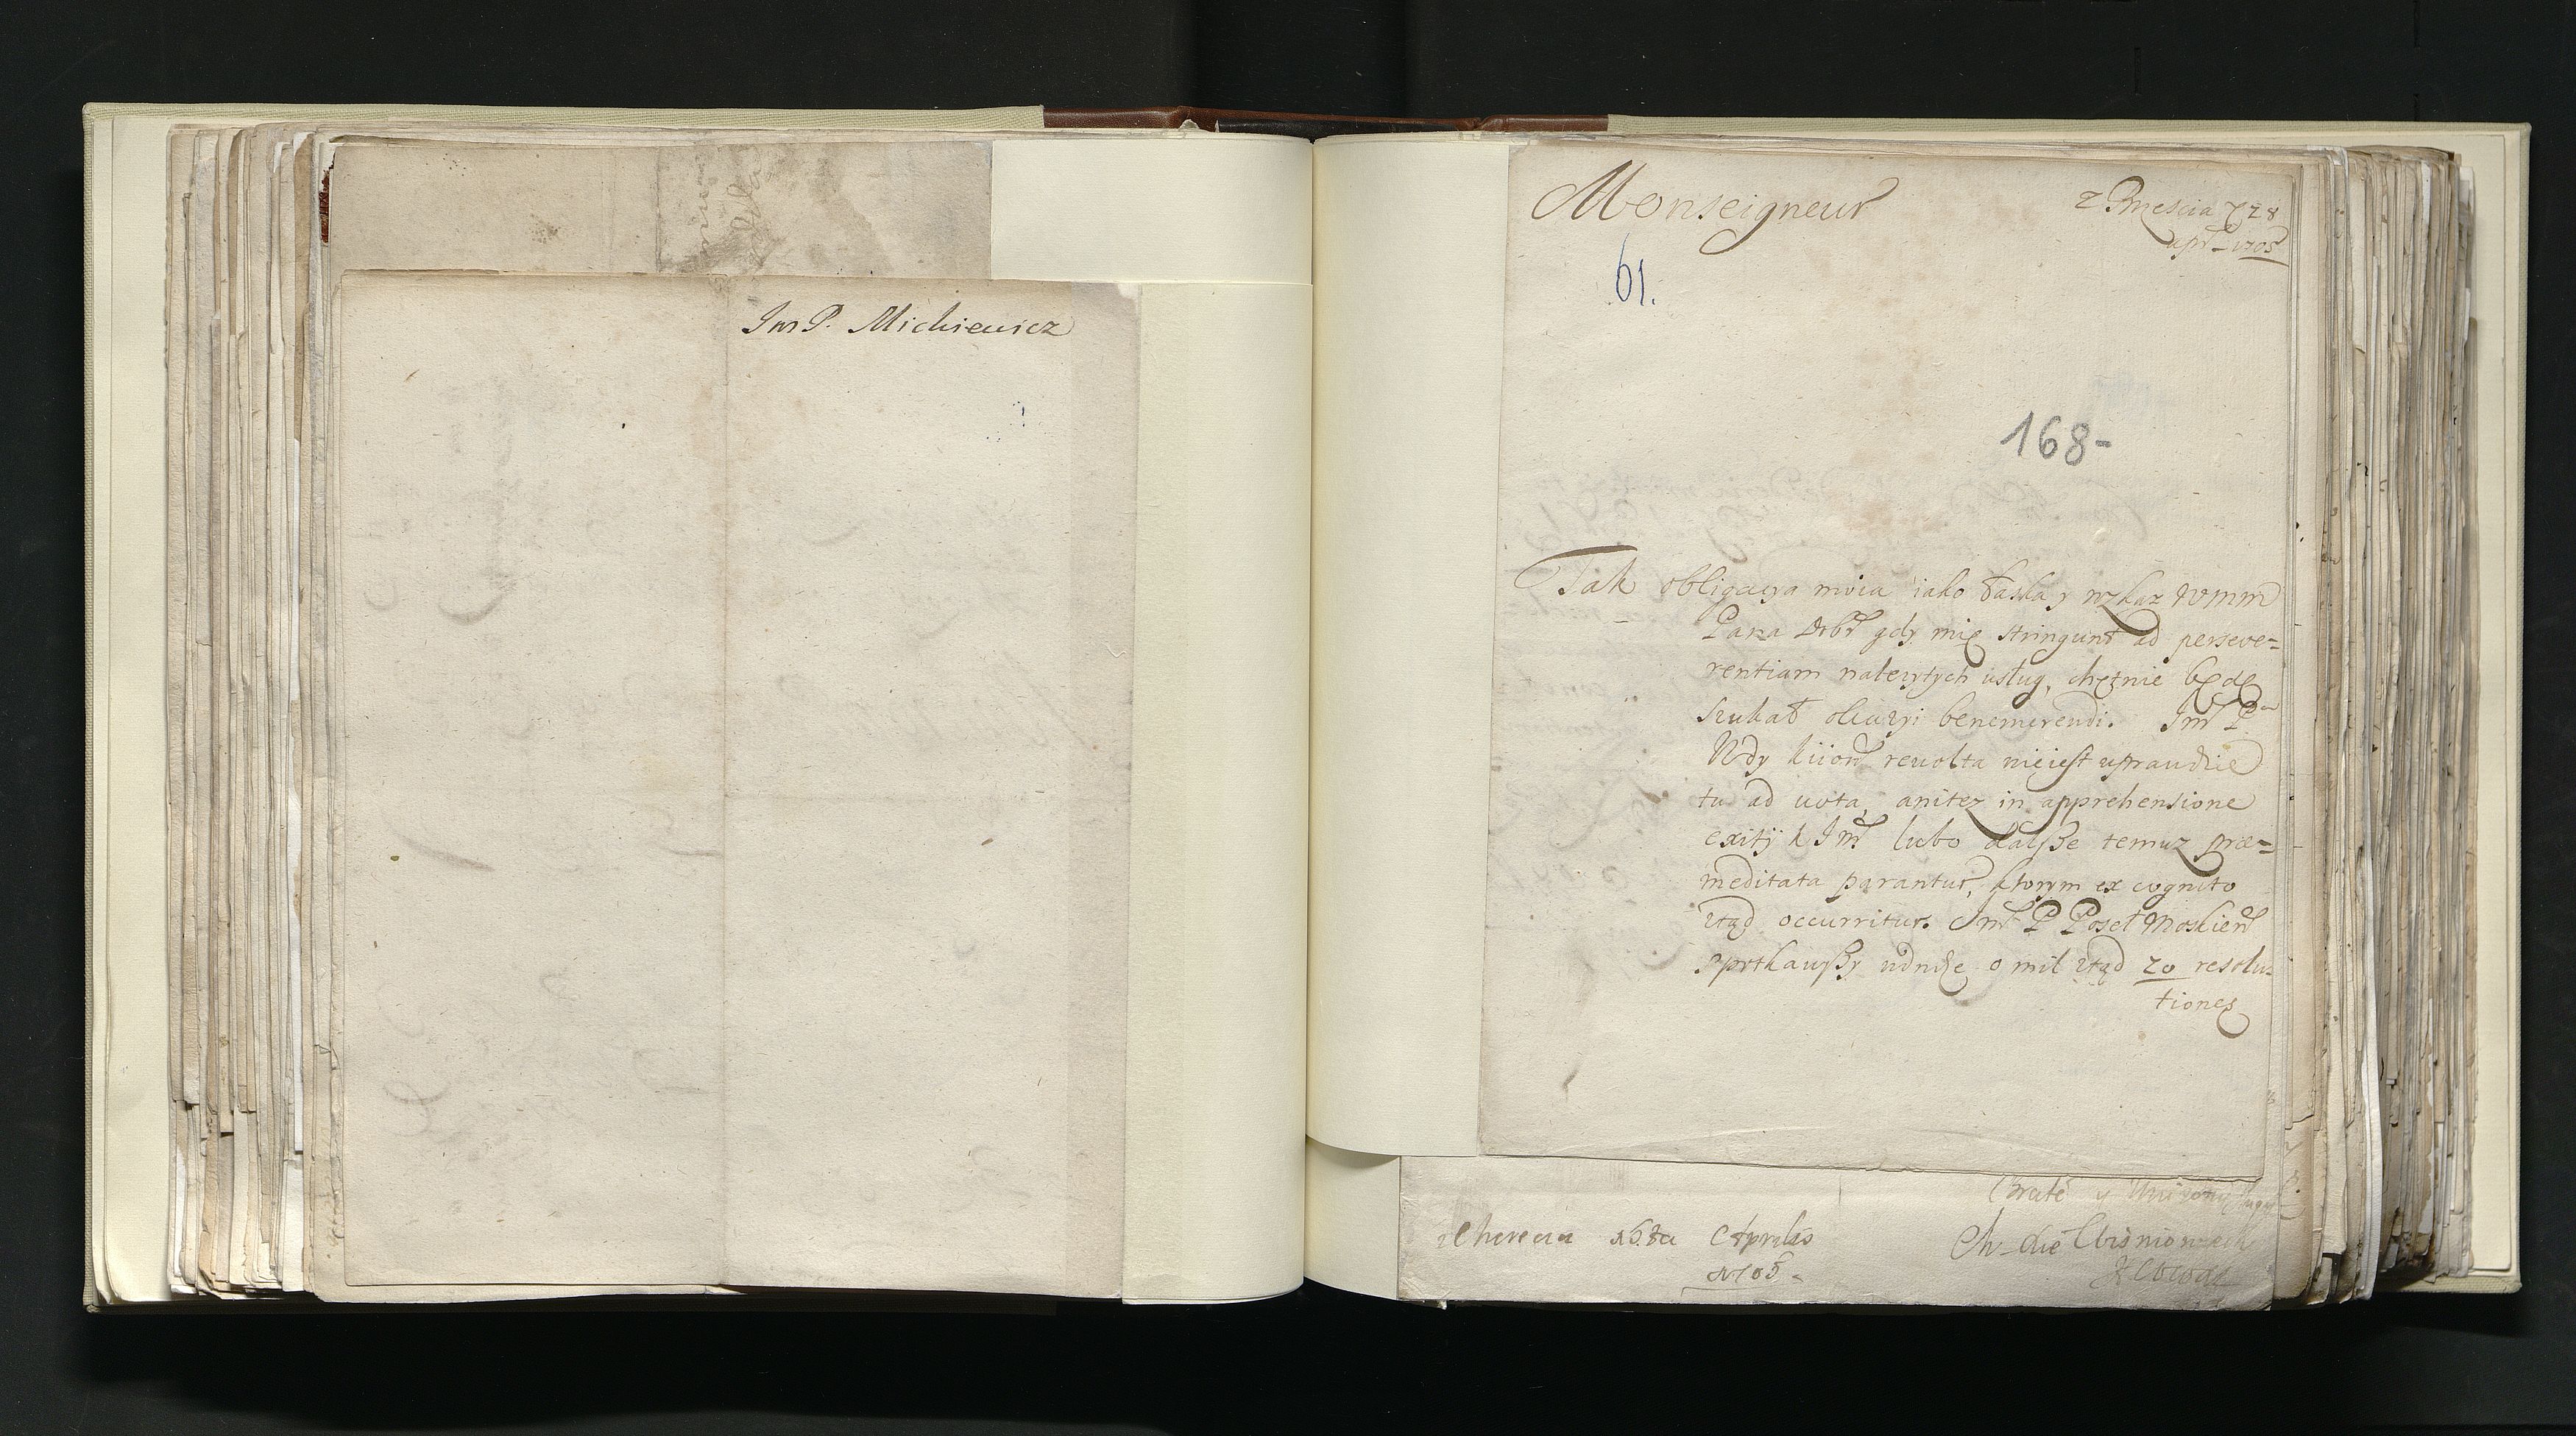 JmP. Michiewicz
Monseigneur
z Brzescia 28
apr. 1705
61.
168-
Tak obligacya moia iako łaska y rozkaz WMM
Pana Dobr gdy mię stringunt ad perseve=
rentiam należytych usług, chętnie będę
szukał okazyi benemerendi. Jm P
Wdy kiiow revolta nieiest wprawdzie
tu ad vota, anitez in apprehensione
exitij k Jm lubo dalsze temuz præ=
meditata parantur, ktorym ex cognito
ztąd occurritur. Jm P Poseł Moskiew
spotkawszy o mil ztąd 20 resolu=
tiones
Brate y Unizony sługa
Aprilis
1705.